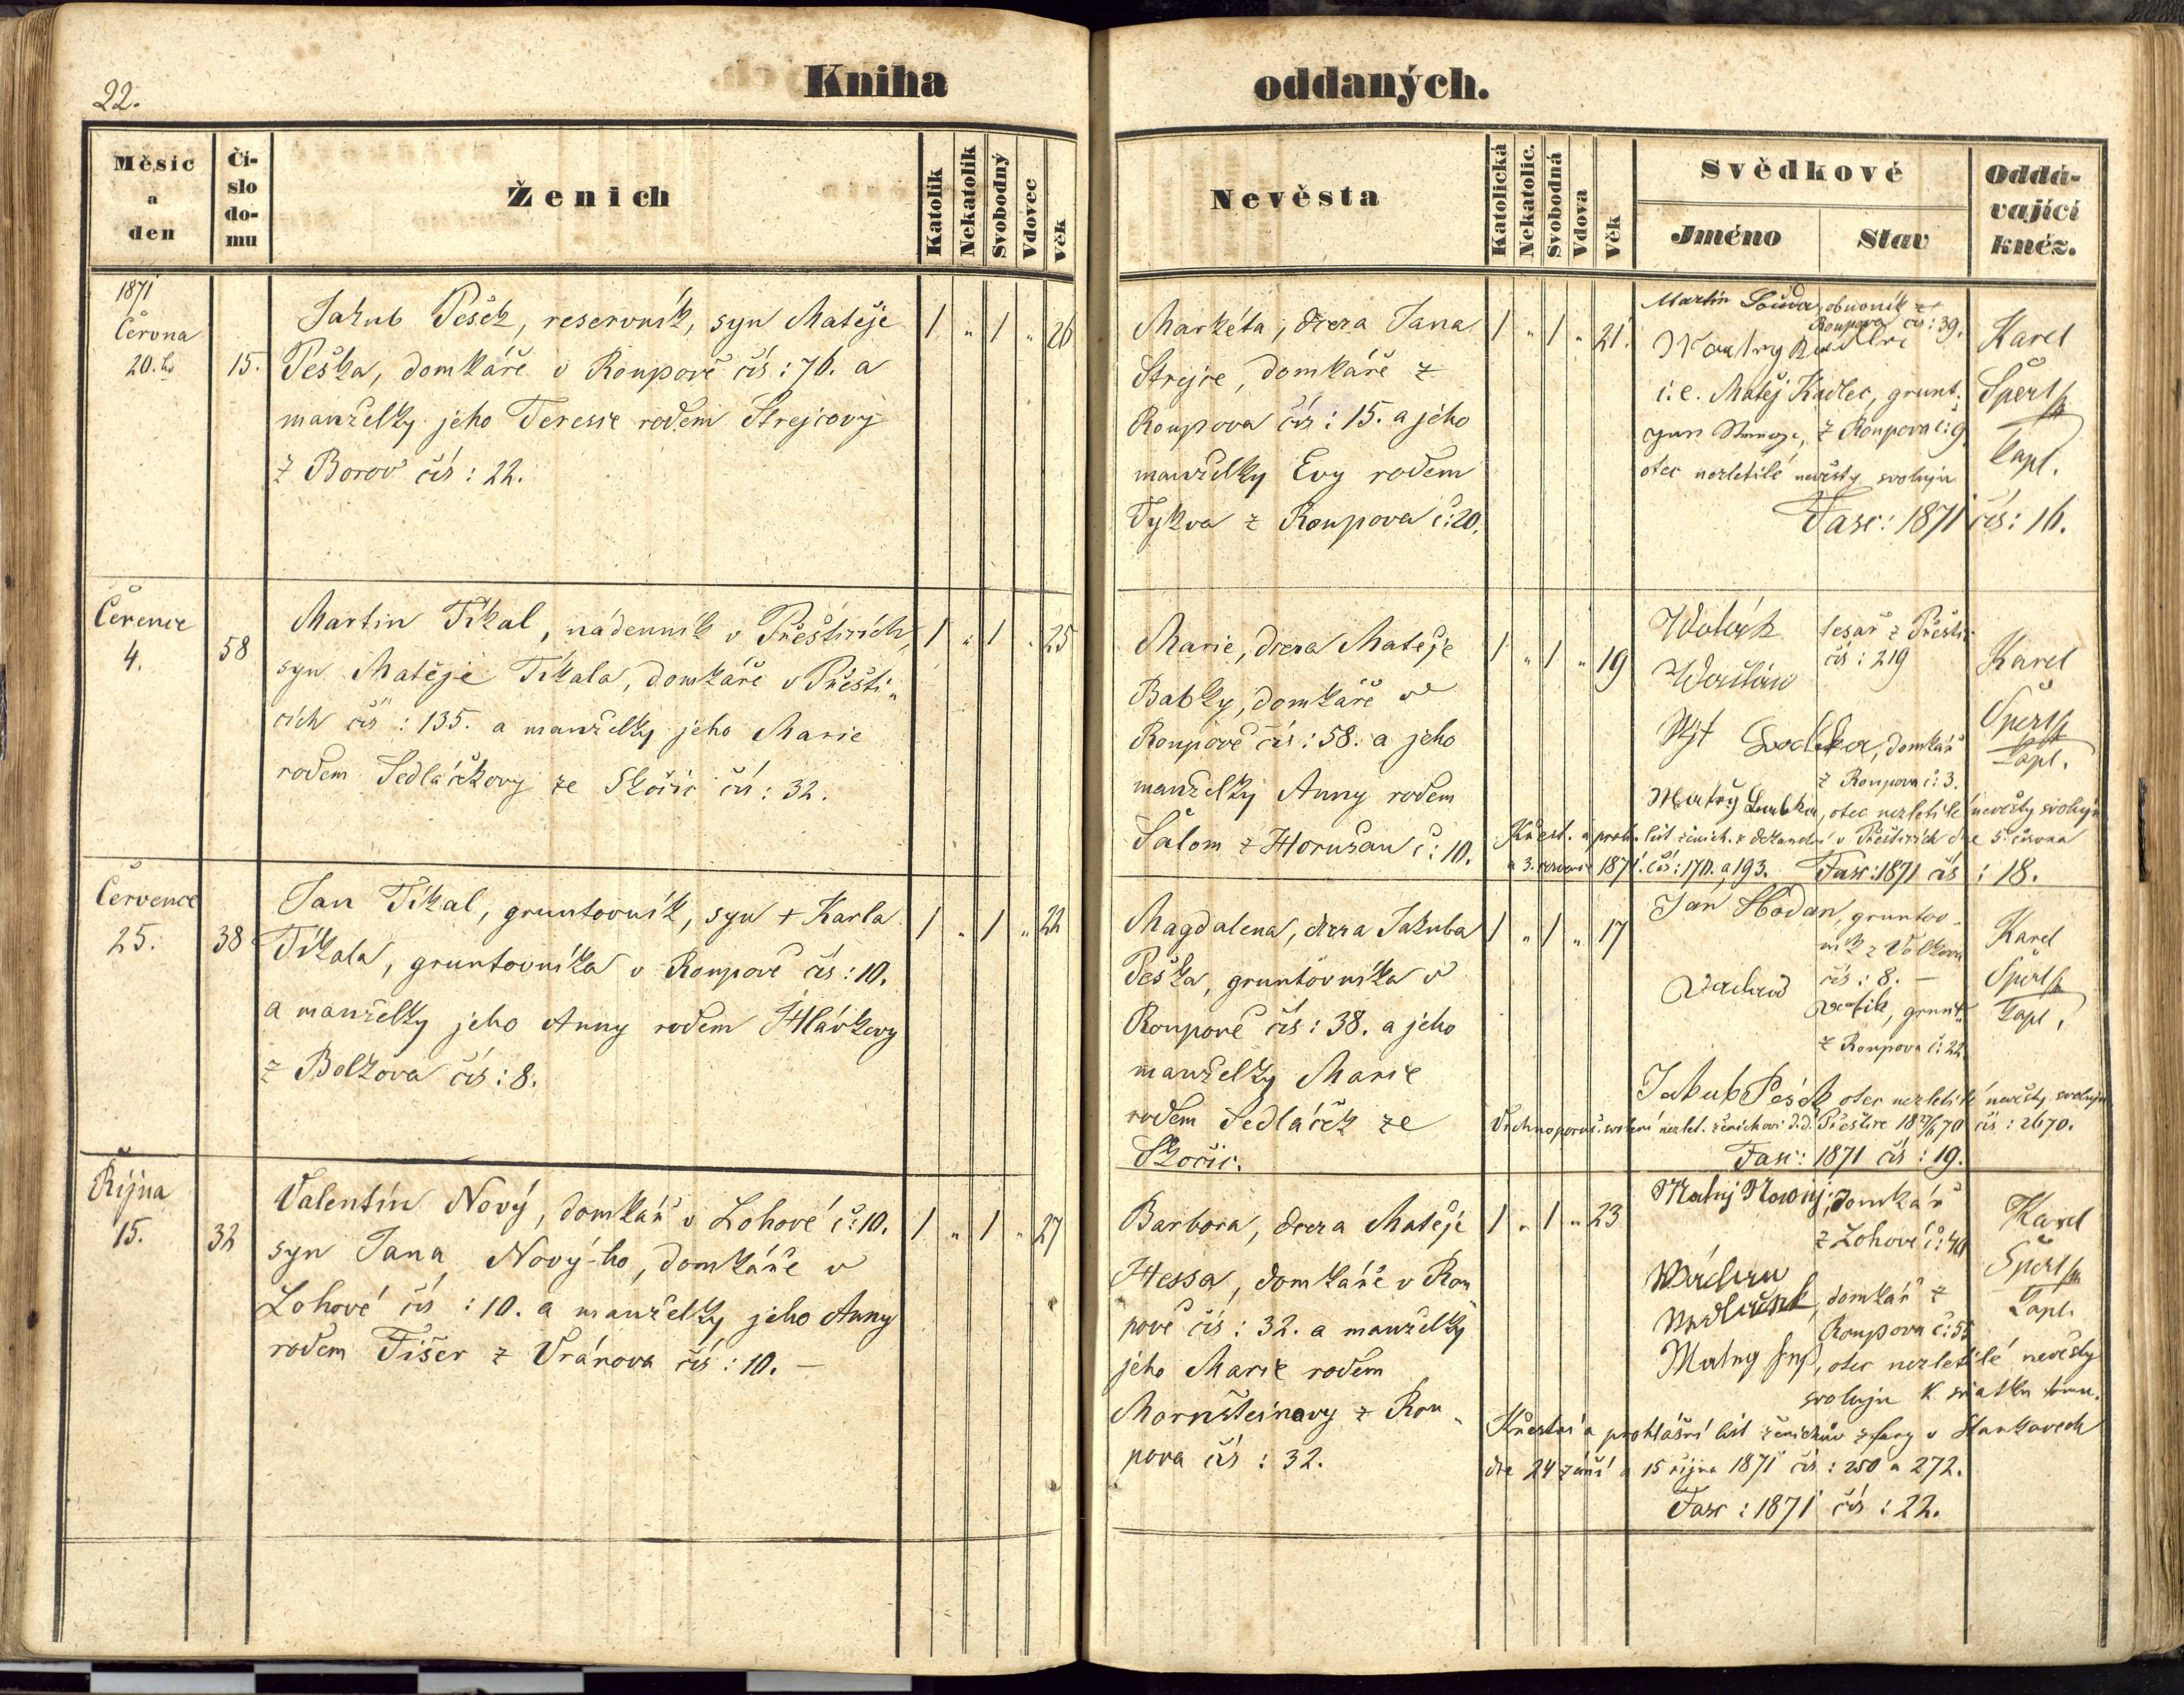 22.
Kniha
oddaných.
Měsíc
a
den
Čí-
slo
do-
mu
Ženich
Katolík
Nekatolík
Svobodný
Vdovec
Věk
Nevěsta
Katolická
Nekatolic.
Svobodná
Vdova
Věk
Svědkové
Jméno
Stav
Oddá-
vající
kněz.
1871
Června
20. ho
15.
Jakub Pešek, reservník, syn Matěje
Peška, domkáře v Roupově čís: 76. a
manželky jeho Teresie rodem Strejcovy
z Borov čís: 22.
1 " 1 " 26
Markéta, dcera Jana
Strejce, domkáře z
Roupova čís: 15. a jeho
manželky Evy rodem
Tykva z Roupova č: 20.
1 " 1 " 21.
Martin Souda, obuvník z
Roupova čís: 39.
i. e. Matěj Kadlec, grunt.
z Roupova č: 9.
otec nezletilé nevěsty svoluju
Fasc: 1871 čís: 16.
Karel
Šperl
kapl.
Července
4.
58
Martin Tikal, nádenník v Přešticích,
syn Matěje Tikala, domkáře v Přešti-
cích čís: 135. a manželky jeho Marie
rodem Sedláčkovy ze Skočic čís: 32.
1 " 1 " 25
Marie, dcera Matěje
Babky, domkáře v
Roupově čís: 58. a jeho
manželky Anny rodem
Šalom z Horušan č: 10.
1 " 1 " 19
tesař z Přeštic
čís: 219
domkář
z Roupova č: 3.
otec nezletilé nevěsty svoluju
Křest. a prohl. list ženich. z děkanství v Přešticích dne 5. června
a 3. července 1871. čís: 170. a 193. Fasc: 1871 čís: 18.
Karel
Šperl
kapl.
Července
25.
38
Jan Tikal, gruntovník, syn + Karla
Tikala, gruntovníka v Roupově čís: 10.
a manželky jeho Anny rodem Hlávkovy
z Bolkova čís: 8.
1 " 1 " 22
Magdalena, dcera Jakuba
Peška, gruntovníka v
Roupově čís: 38. a jeho
manželky Marie
rodem Sedláček ze
Skočic.
1 " 1 " 17
Jan Hodan, gruntov-
ník z Volkova
čís: 8. –
grunt.
z Roupova č: 22.
Jakub Pešek otec nezletilé nevěsty svoluju
Vrchnoporuč. svolení nezlet. ženichovi d.d. Přeštice čís: 2670.
Fasc: 1871 čís: 19.
Karel
Šperl
kapl.
Října
15.
32
Valentin Nový, domkář v Lohové č: 10.
syn Jana Nový-ho, domkáře v
Lohové čís: 10. a manželky jeho Anny
rodem Fišer z Vránova čís: 10. –
1 " 1 " 27
Barbora, dcera Matěje
Hessa, domkáře v Rou-
pově čís: 32. a manželky
jeho Marie rodem
Mornšteinovy z Rou-
pova čís: 32.
1 " 1 " 23
Matěj Nowý, domkář
z Lohové č: 40
domkář z
Roupova č: 55
otec nezletilé nevěsty
svoluju k sňatku tomu.
Křestní a prohlášní list ženichův z fary v Stankovech
dne 24 září a 15 října 1871 čís: 250 a 272.
Fasc: 1871 čís: 22.
Karel
Šperl
kapl.